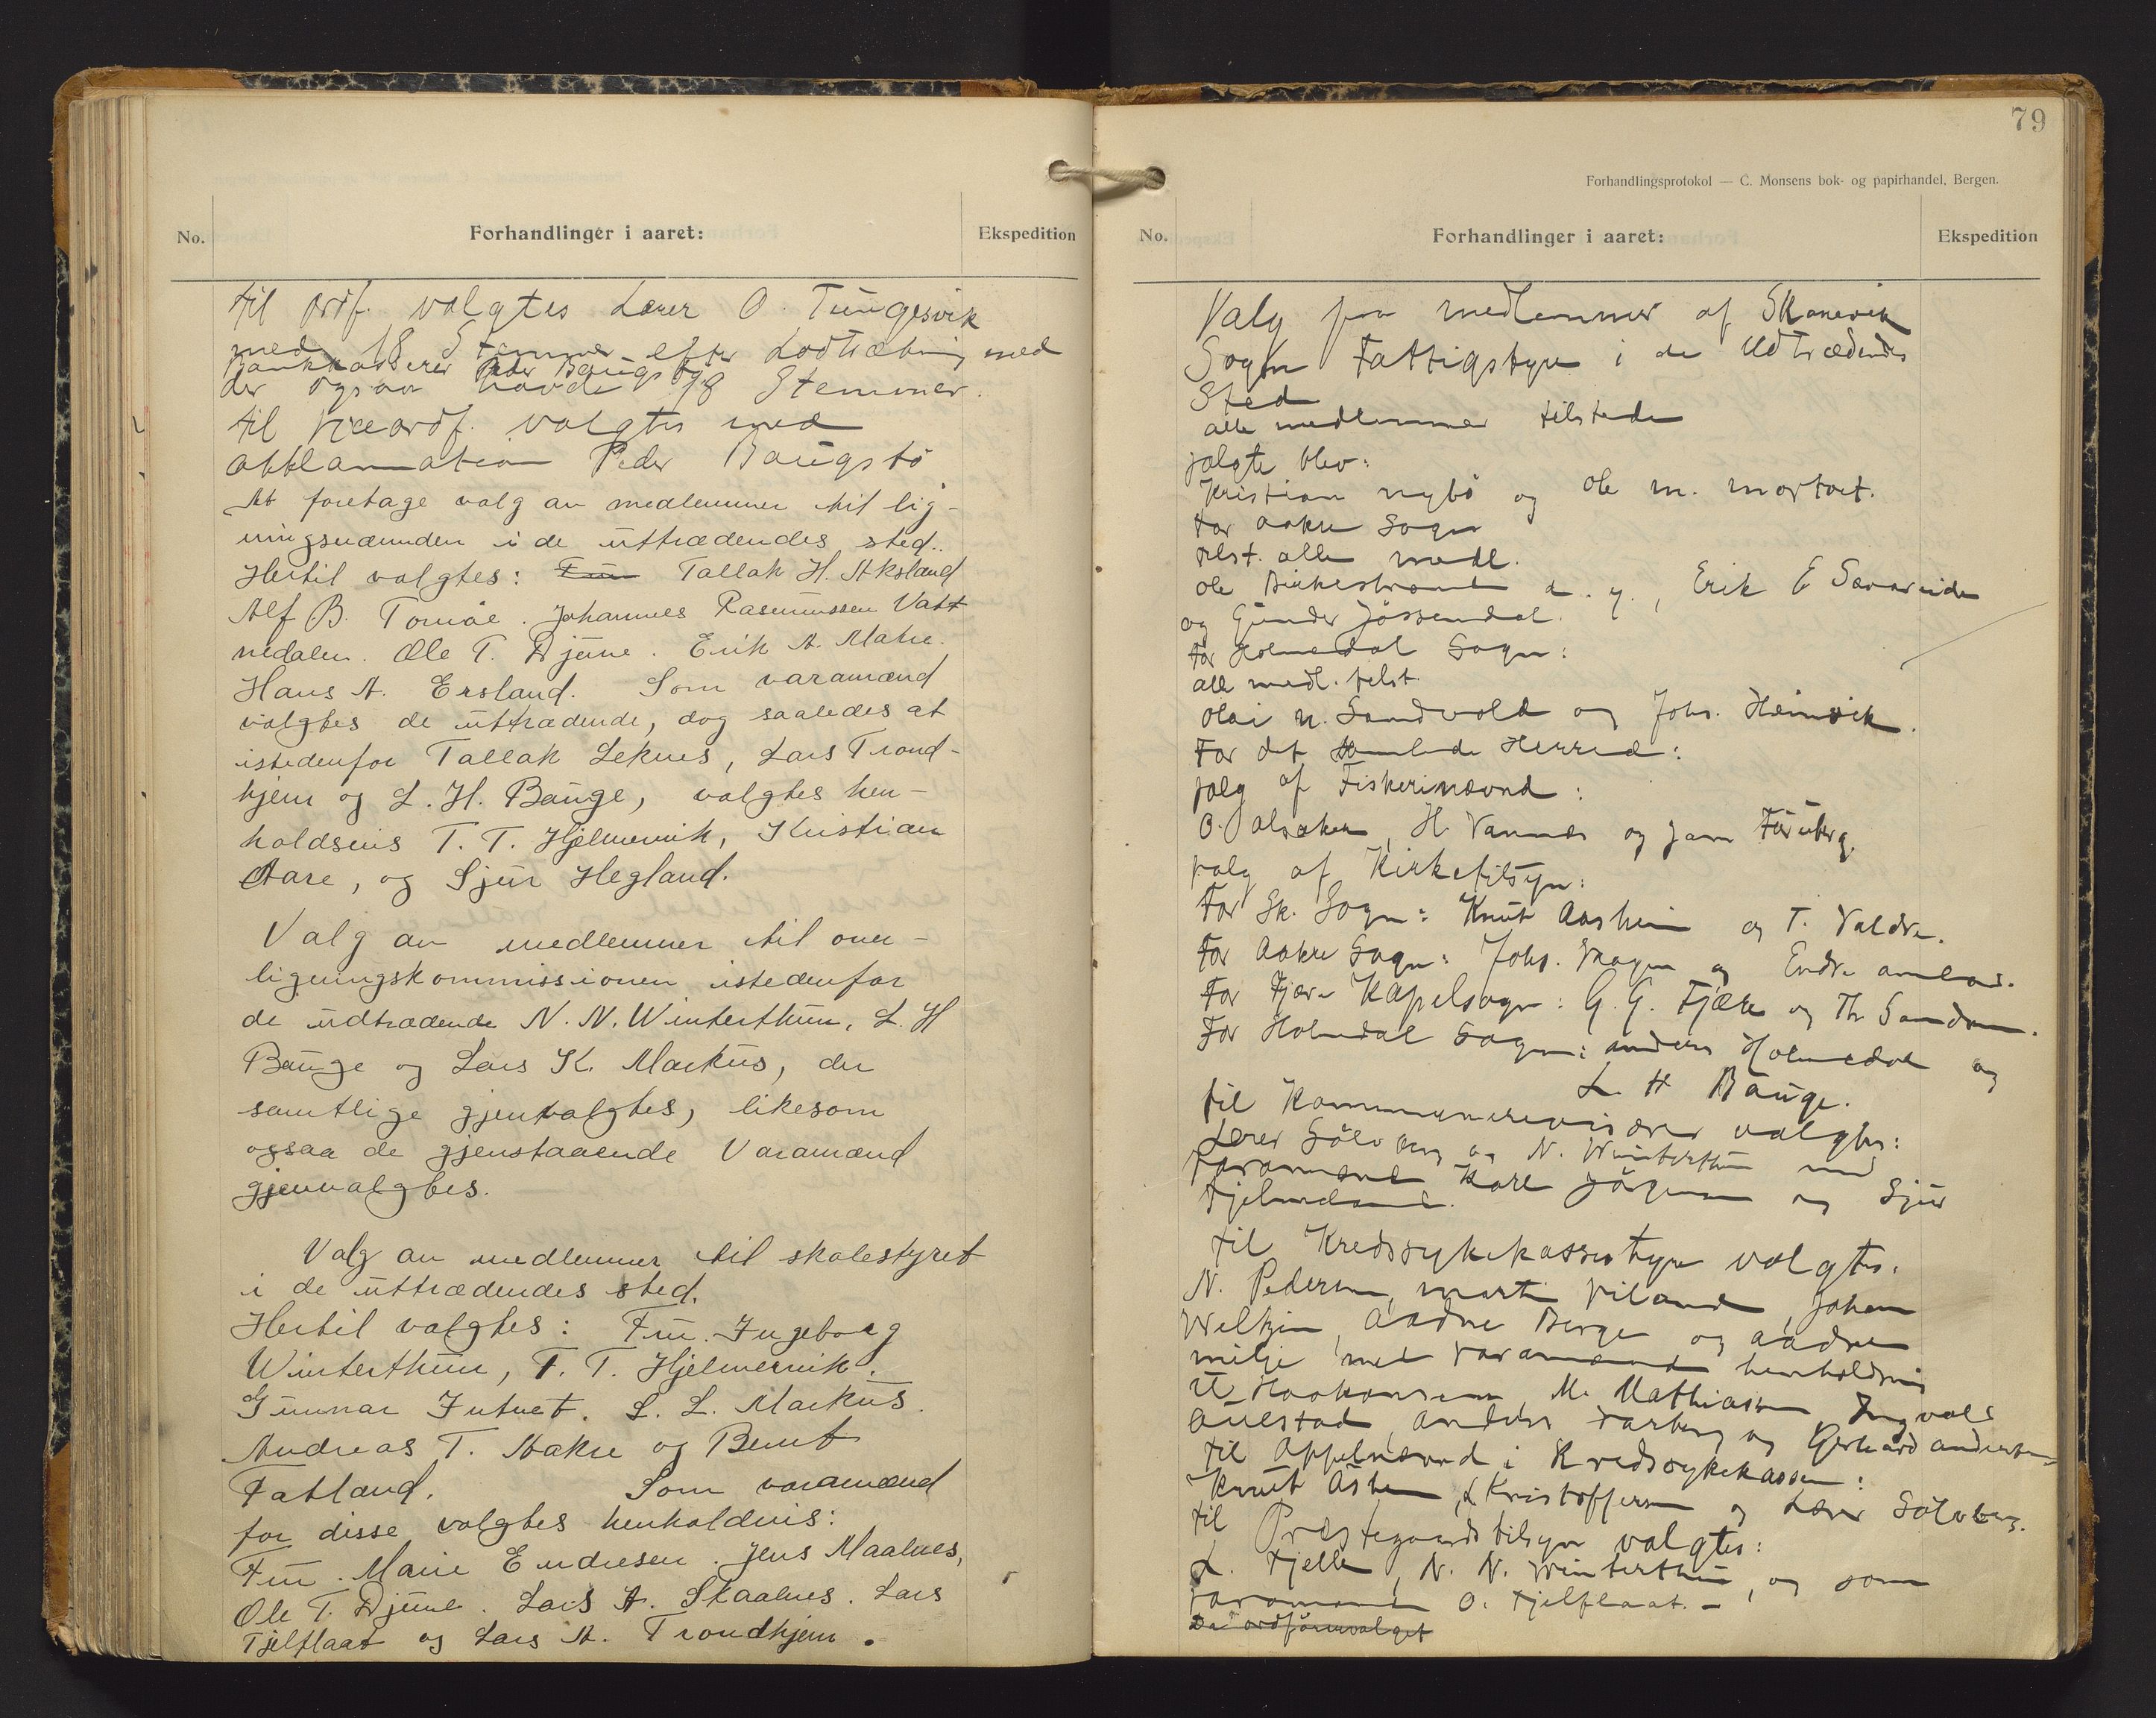 No.
Forhandlinger i aaret:
Ekspedition
til ordf. valgtes Lærer O. Tungesvik
med 18 Stemmer efter Lodtrækning med
Bankkasserer Peder Baugstø
der ogsaa havde 18 Stemmer.
til viceordf. valgtes med
akklamation Peder Baugstø
At foretage valg av medlemmer til lig-
ningsnævnden i de uttrædendes sted.
Hertil valgtes: Fru Tallak H. Aksland
Alf B. Tomøe. Johannes Rasmussen Vatt
nedalen. Ole T. Djune. Erik A. Makre.
Hans A. Ersland. Som varamænd
valgtes de uttrædende, dog saaledes at
istedenfor Tallak Leknes, Lars Trond-
hjem og L. H. Bauge, valgtes hen-
holdsvis T. T. Hjelmervik, Kristian
Aare, og Sjur Hegland.
Valg av medlemmer til over-
ligningskommissionen istedenfor
de udtrædende N. N. Winterthun, L. H
Bauge og Lars K. Markus, der
samtlige gjenvalgtes, likesom
ogsaa de gjenstaaende Varamænd
gjenvalgtes.
Valg av medlemmer til skolestyret
i de uttrædendes sted.
Hertil valgtes: Fru. Ingeborg
Winterthun, T. T. Hjelmervik.
Gunnar Jutnet. L. L. Markus.
Andreas T. Aakre og Bernt
Fatland. Som varamænd
for disse valgtes henholdvis:
Fru. Marie Endresen. Jens Maalnes,
Ole T. Djune. Lars A. Skaalnes. Lars
Tjelflaat og Lars A. Trondhjem.
79
Forhandlingsprotokol — C. Monsens bok- og papirhandel, Bergen.
No.
Forhandlinger i aaret:
Ekspedition
Valg paa medlemmer af Skanevik
Sogns Fattigstyre i de Udtrædendes
Sted
alle medlemmer tilstede
Valgte blev:
Kristian nybø og Ole M. Mortvet.
For Aakre Sogn
tilst. alle medl.
Ole Birkestrand d. y., Erik E Sævareide
og Gunder Jøssendal.
For Holmedal Sogn:
alle medl. tilst.
Olai N. Sandvold og Johs. Heimvik.
For det samlede Herred:
Valg af Fiskerinævnd:
O. Alsaker, H. Vannes og Jam
Valg af Kirketilsyn:
For Sk. Sogn: Knut Aasheim og T. Valdre.
For Aakre Sogn: Johs. Skagen og Endre
For Fjære Kapelsogn: G. G. Fjære og Th
For Holmedal Sogn: Anders Holmedal og
L. H Bauge.
Til Kommunerevisorer valgtes:
Lærer Sølvberg og N. Winterthun med
Varamænd Karl Jørgensen og Sjur
Til Kredssykekassestyre valgtes.
N. Pedersen, Martin Viland, Johan
Andre Berge og Andre
milje med varamænd henholdsvis
Haakonsen M. Mathiasen Ingvald
Aulestad, Anders Varberg og Gerhard Andersen
til Appelnævnd i Kredssykekassen:
Knut L Kristoffersen og Lærer Sølvberg.
til Præstegaardstilsyn valgtes:
L. Fjelle, N. N. Winterthun, og som
varamand O. Tjelflaat. -
Da ordførervalget